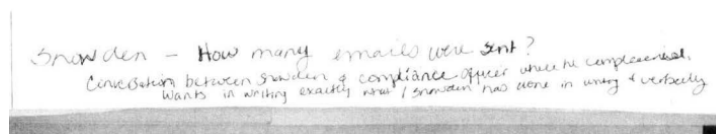 Snowden - How many emails were sent?
Conversation between Snowden & compliance officer where he complained.
Wants in writing exactly what Snowden has done in writing & verbally